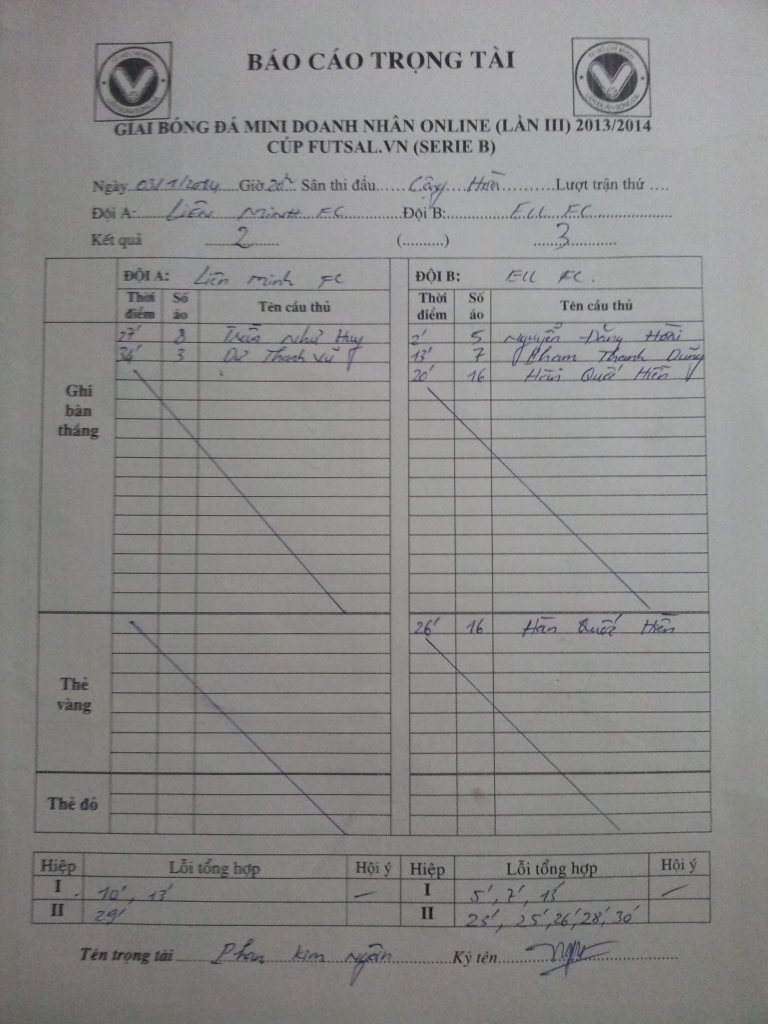 BÁO CÁO TRỌNG TÀI
GIẢI BÓNG ĐÁ MINI DOANH NHÂN ONLINE (LẦN III) 2013/2014
CÚP FUTSAL.VN (SERIE B)
Ngày 03/1/2014 Giờ 20h Sân thi đấu...... Cộng Hòa ..........Lượt trận thứ ....
Đội A:...... Liên Minh FC ..........Đội B:.......... ELL FC ..........
Kết quả 2 (..........) 3
ĐỘI A: Liên Minh FC ĐỘI B: ELL FC.
Thời điểm Số áo Tên cầu thủ Thời điểm Số áo Tên cầu thủ
Ghi bàn thắng
27' 8 Trần Như Huy 2' 5 Nguyễn Đăng Hoài
34' 3 Dư Thanh Vũ 13' 7 Phạm Thanh Dũng
20' 16 Hàn Quốc Hiền
Thẻ vàng
26' 16 Hàn Quốc Hiền
Thẻ đỏ
Hiệp Lỗi tổng hợp Hội ý Hiệp Lỗi tổng hợp Hội ý
I 10', 13' – I 5', 7', 13' –
II 29' II 23', 25', 26', 28', 30'
Tên trọng tài Phan Kim Ngân Ký tên